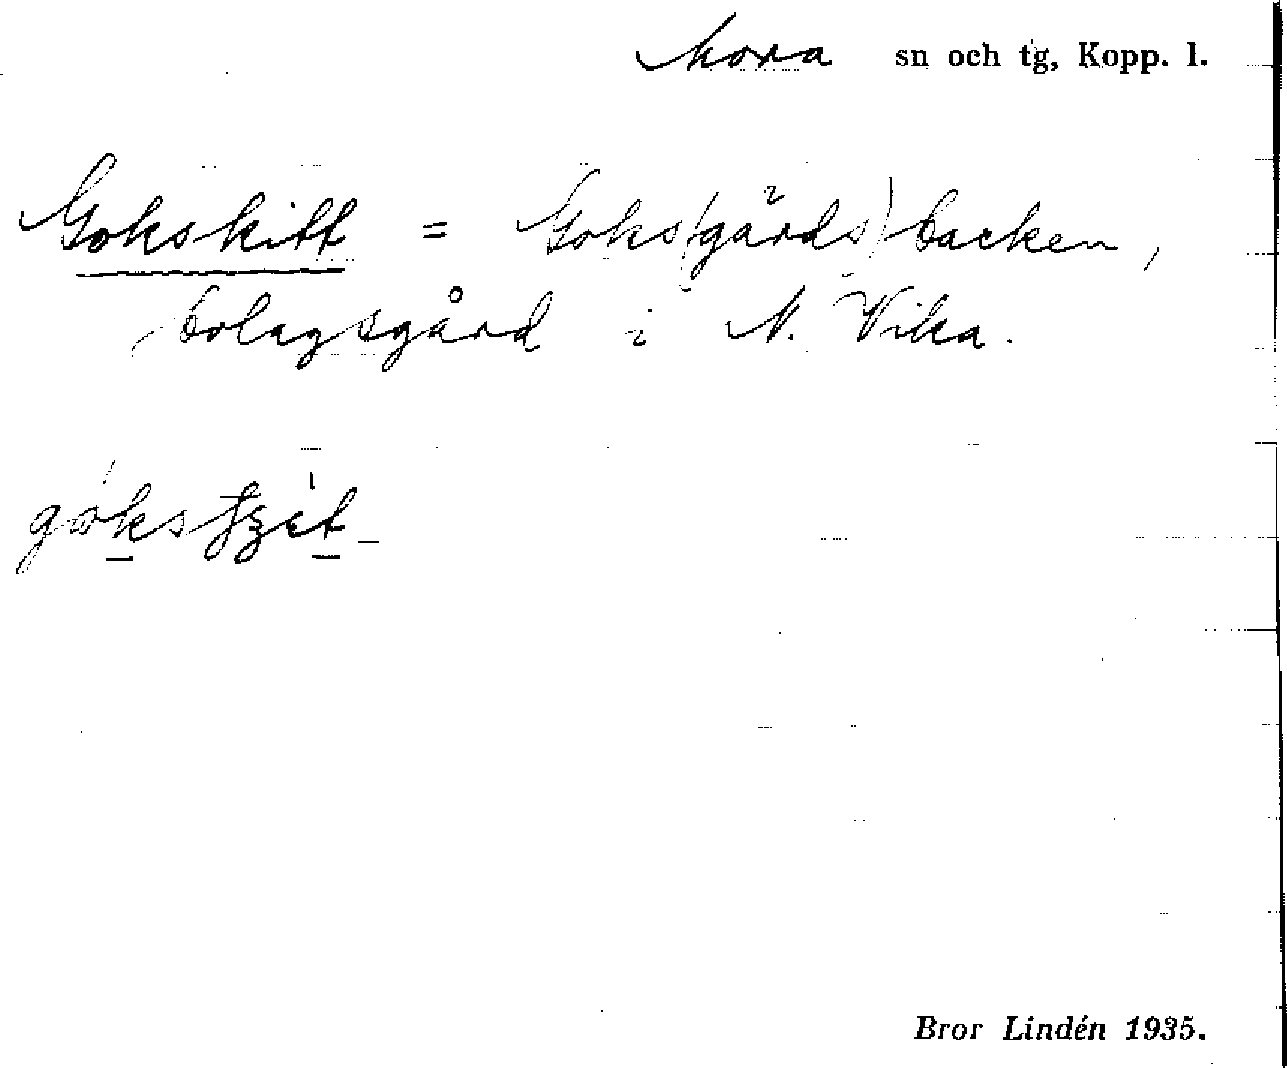 Mora sn och tg, Kopp. l.
Gokskitt = Goks(gårds)backen,
bolagsgård i N. Vika.
Bror Lindén 1935.